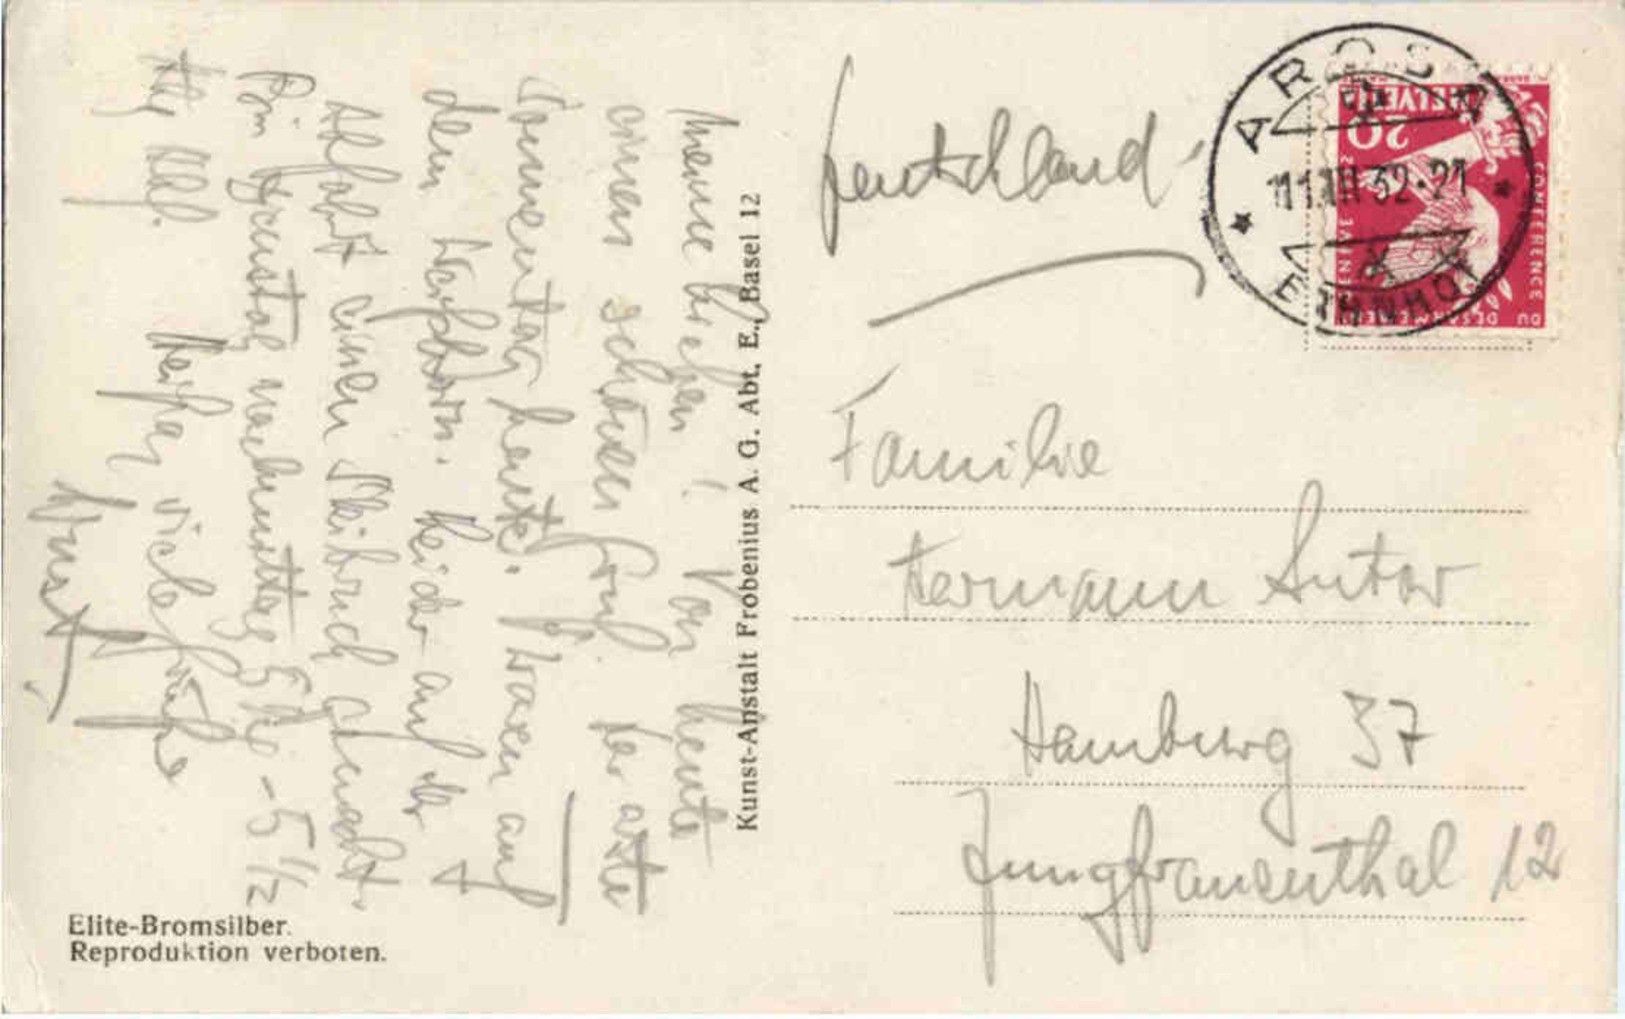 Meine Lieben! Von heute
einen schönen Gruß. Der erste
Sonnentag heute. Waren auf
dem Weißhorn. Leider auf der
Abfahrt einen Skibruch gemacht.
Bin
nachmittag 5 - 5 1/2
viele Grüße
Kunst-Anstalt Frobenius A. G. Abt. E., Basel 12
Elite-Bromsilber.
Reproduktion verboten.
Deutschland
Familie
Hermann Sutor
Hamburg 37
Jungfrauenthal 12
AROSA
32-21
HELVETIA
20
CONFERENCE
DU DESARMEMENT